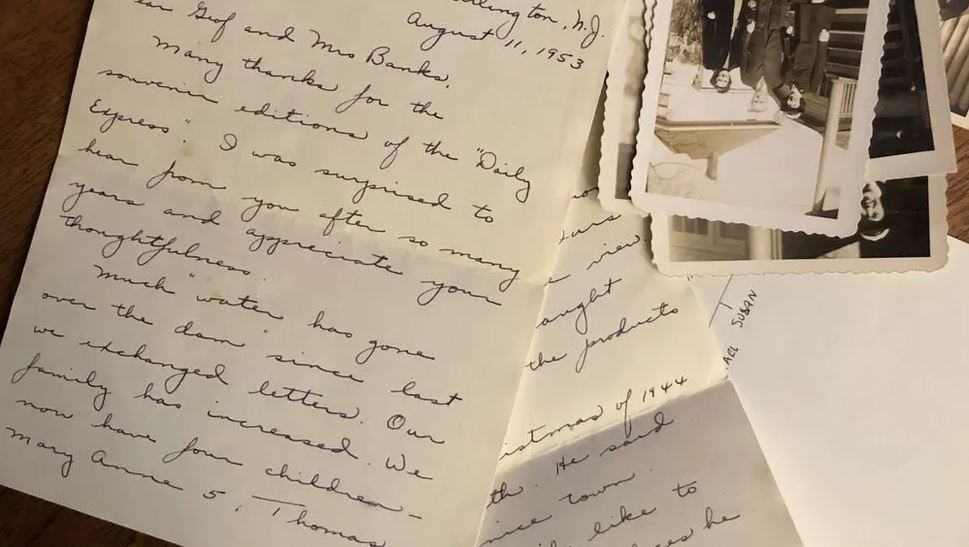 August 11, 1953
Geof and Mrs Banks,
Many thanks for the
souvenir editions of the "Daily
Express". I was surprised to
hear from you after so many
years and appreciate your
thoughtfulness.
Much "water has gone
over the dam" since last
we exchanged letters. Our
family has increased. We
now have four children –
Mary Anne 5, Thomas
view
the products
of 1944
He said
town
like to
he
SUSAN